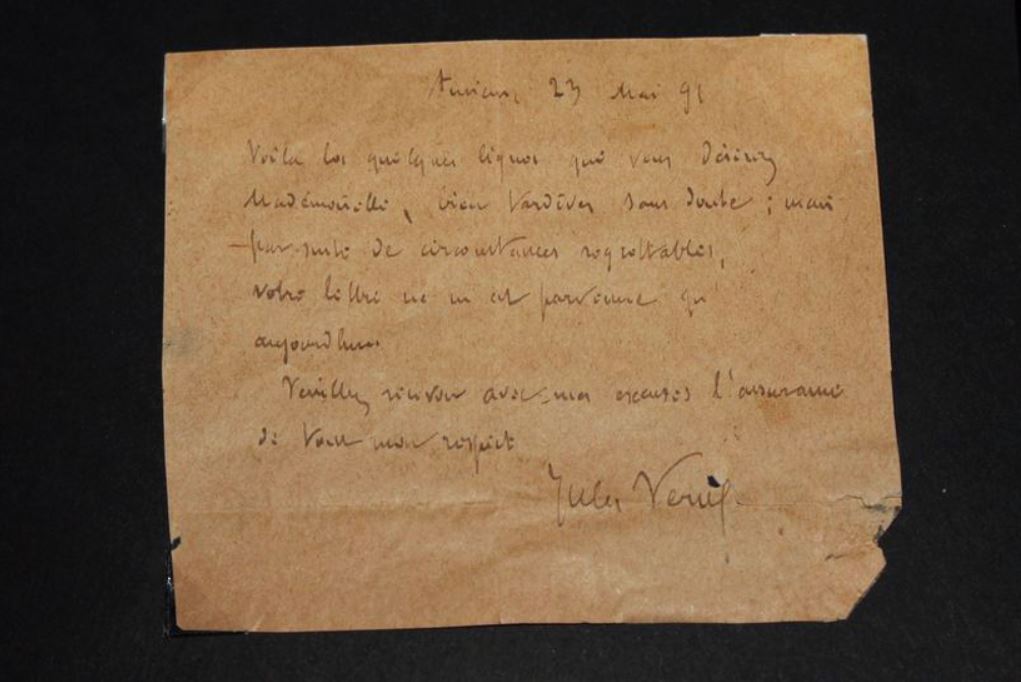 Amiens, 23 Mai 91
Voila les quelques lignes que vous désirez
Mademoiselle, bien tardives sans doute ; mais
par suite de circonstances regrettables,
votre lettre ne m'est parvenue qu'
aujourd'hui.
Veuillez recevoir avec mes excuses l'assurance
de tout mon respect
Jules Verne